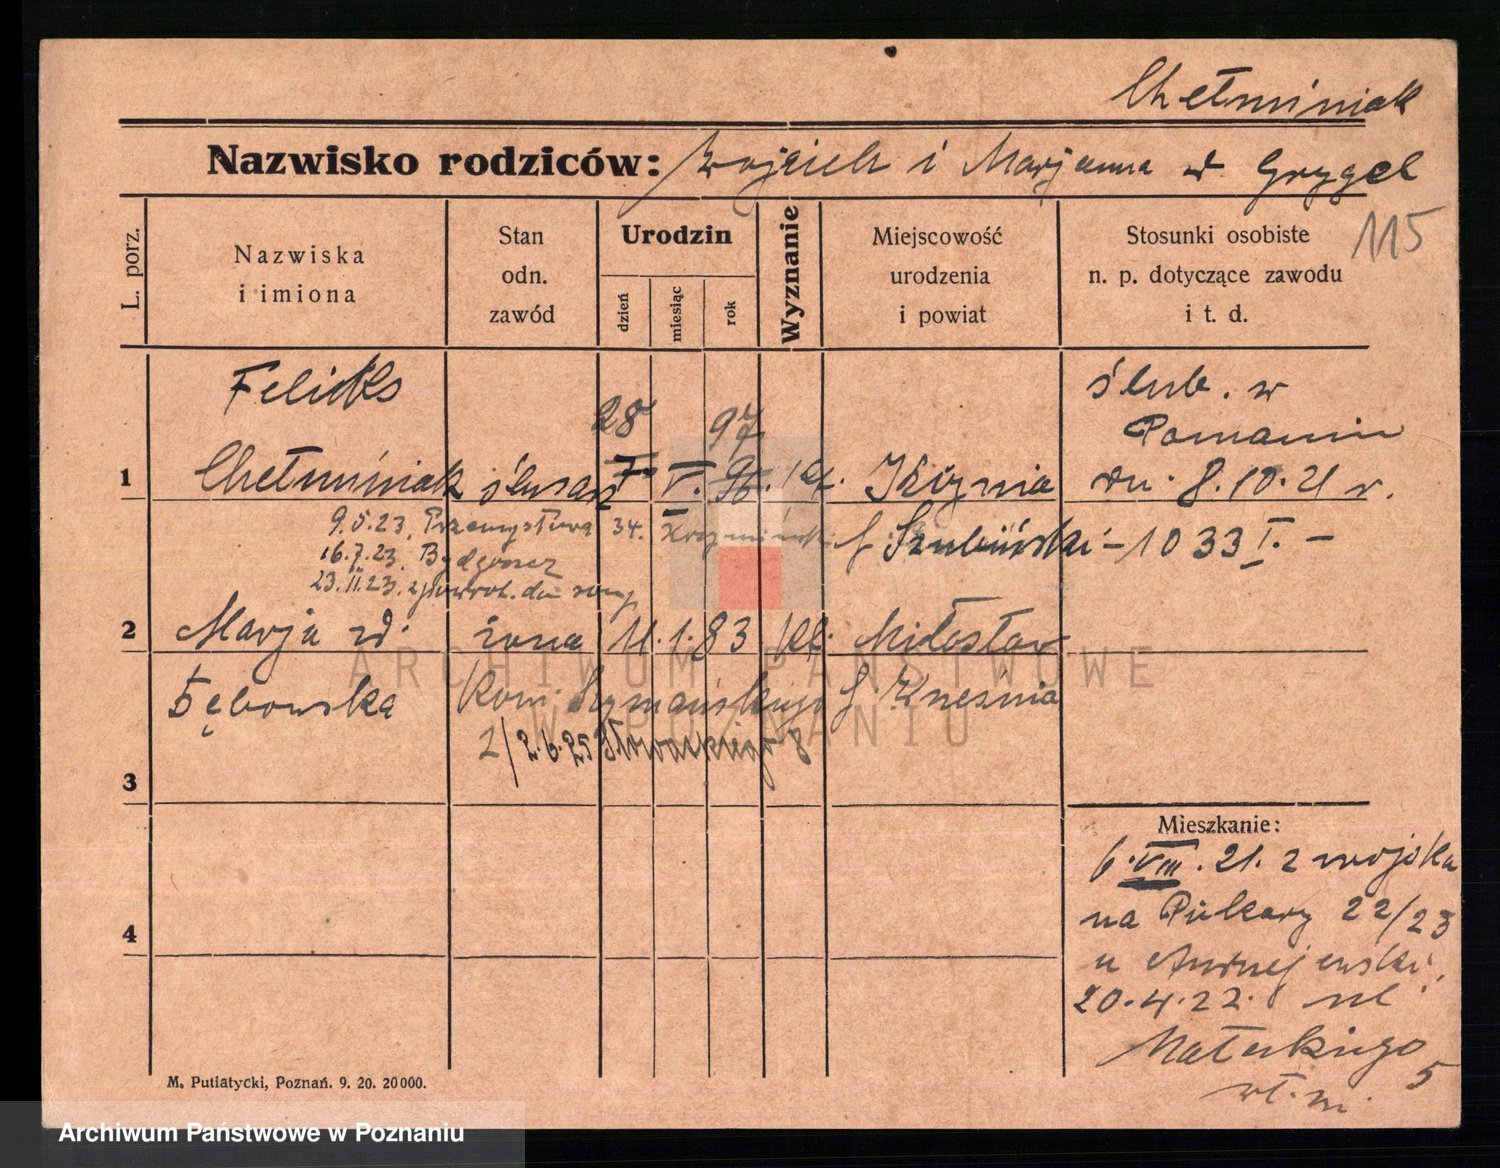 Chełminiak
Nazwisko rodziców: Wojciech i Marjanna zd Grygel
115
L. porz.
Nazwiska
i imiona
Stan
odn.
zawód
Urodzin
dzień
miesiąc
rok
Wyznanie
Miejscowość
urodzenia
i powiat
Stosunki osobiste
n. p. dotyczące zawodu
i t. d.
Feliks
28 97
1 Chełminiak ślusarz 7. V. 96. kat.
ślub. w
Poznaniu
dn. 8.10.21 r.
9.5.23. Przemysłowa 34.
p. Szubiński - 1033 I. -
16.7.23. Bydgoszcz
23.II.23. z powrot. do
2 Marja zd. żona 11. 1. 83 kat. Miłosław
Dębowska Szymańskiego p. Września
2/2.6.25 Słowackiego 8
3
4
Mieszkanie:
6.VIII.21. z wojska
na Piekary 22/23
u Andrzejewski,
20.4.22. ul.
Małeckiego 5
wł. m.
M. Putiatycki, Poznań. 9. 20. 20000.
ARCHIWUM PAŃSTWOWE
W POZNANIU
Archiwum Państwowe w Poznaniu